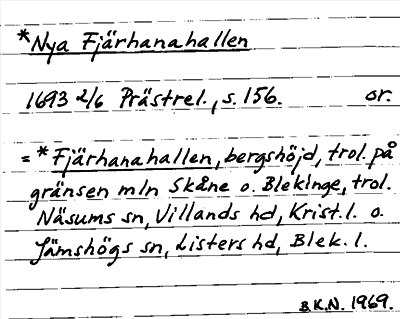 *Nya Fjärhanahallen
1693 2/6 Prästrel., s. 156. or.
= *Fjärhanahallen, bergshöjd, trol. på
gränsen mln Skåne o. Blekinge, trol.
Näsums sn, Villands hd, Krist. l. o.
Jämshögs sn, Listers hd, Blek. l.
B.K.N. 1969.